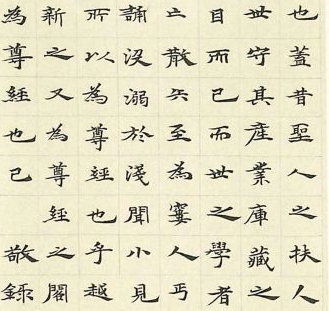 也蓋昔聖人之扶人
世守其產業庫藏之
目而已而世之學者
亡散失至為窶人丐
誦沒溺於淺聞小見
所以為尊經也乎越
新之又為尊經之閣
為尊經也已 敬錄